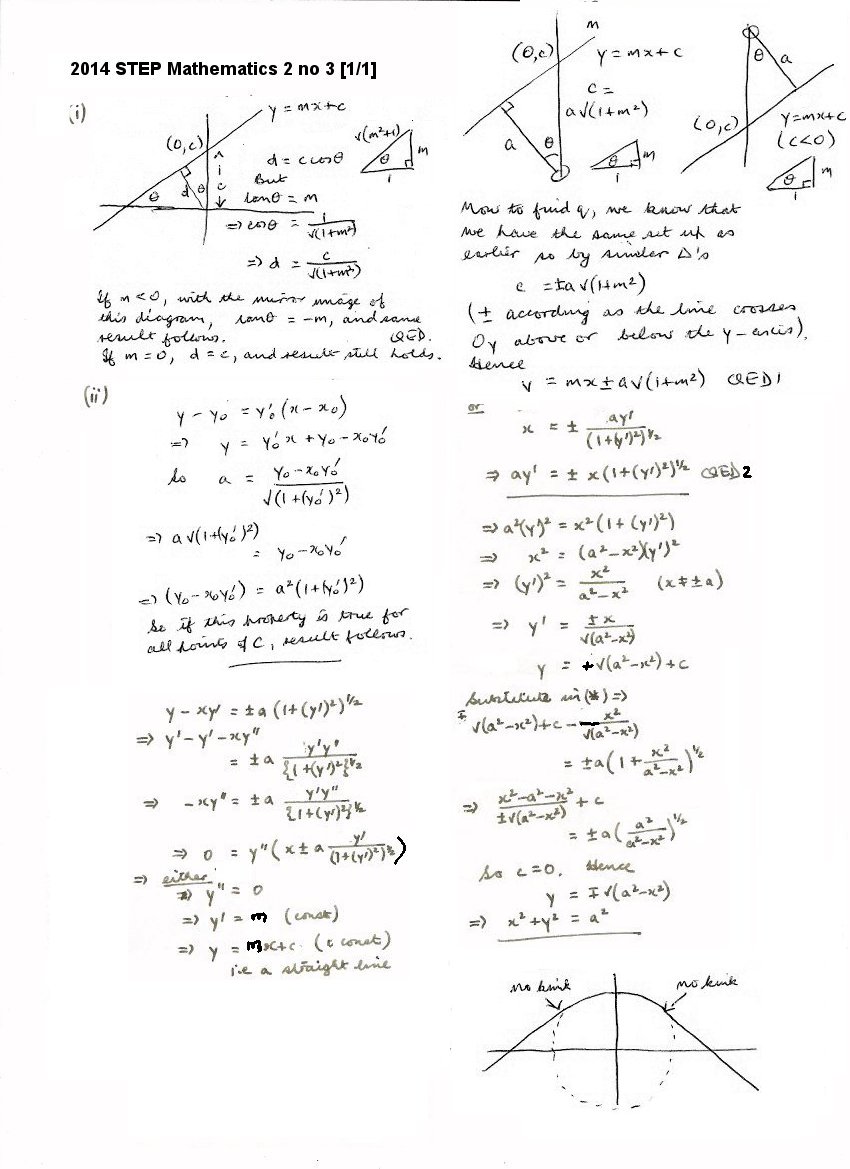 2014 STEP Mathematics 2 no 3 [1/1]
(i)
y = mx+c
(0,c)
d = c cosθ
But
tanθ = m
⇒ cosθ = 1/√(1+m²)
⇒ d = c/√(1+m²)
√(m²+1)
θ
m
1
θ
d
θ
c
If m<0, with the mirror image of
this diagram, tanθ = -m, and same
result follows. QED.
If m=0, d=c, and result still holds.
(ii)
y - y₀ = y₀′(x-x₀)
⇒ y = y₀′x + y₀ - x₀y₀′
So a = (y₀-x₀y₀′)/√(1+(y₀′)²)
⇒ a√(1+(y₀′)²)
= y₀-x₀y₀′
⇒ (y₀-x₀y₀′) = a²(1+(y₀′)²)
So if this property is true for
all points of C, result follows.
y - xy′ = ±a(1+(y′)²)^½
⇒ y′-y′-xy″
= ±a y′y″/{1+(y′)²}^½
⇒ -xy″ = ±a y′y″/{1+(y′)²}^½
⇒ 0 = y″(x±a y′/(1+(y′)²)^½)
⇒ either
⇒ y″ = 0
⇒ y′ = m (const)
⇒ y = mx+c (c const)
i.e a straight line
m
(0,c)
y = mx+c
c =
a√(1+m²)
a
θ
θ
m
1
θ
a
(0,c)
y=mx+c
(c<0)
θ
m
1
Now to find y, we know that
we have the same set up as
earlier so by similar Δ's
c = ±a√(1+m²)
(± according as the line crosses
Oy above or below the y-axis),
Hence
y = mx±a√(1+m²) QED1
or
x = ± ay′/(1+(y′)²)^½
⇒ ay′ = ± x(1+(y′)²)^½ QED2
⇒ a²(y′)² = x²(1+(y′)²)
⇒ x² = (a²-x²)(y′)²
⇒ (y′)² = x²/(a²-x²) (x≠±a)
⇒ y′ = ±x/√(a²-x²)
y = ∓√(a²-x²)+c
Substitute in (*) ⇒
∓√(a²-x²)+c - x²/√(a²-x²)
= ±a(1+x²/(a²-x²))^½
⇒ (x²-a²-x²)/±√(a²-x²) + c
= ±a(a²/(a²-x²))^½
So c=0. Hence
y = ∓√(a²-x²)
⇒ x²+y² = a²
no kink
no kink